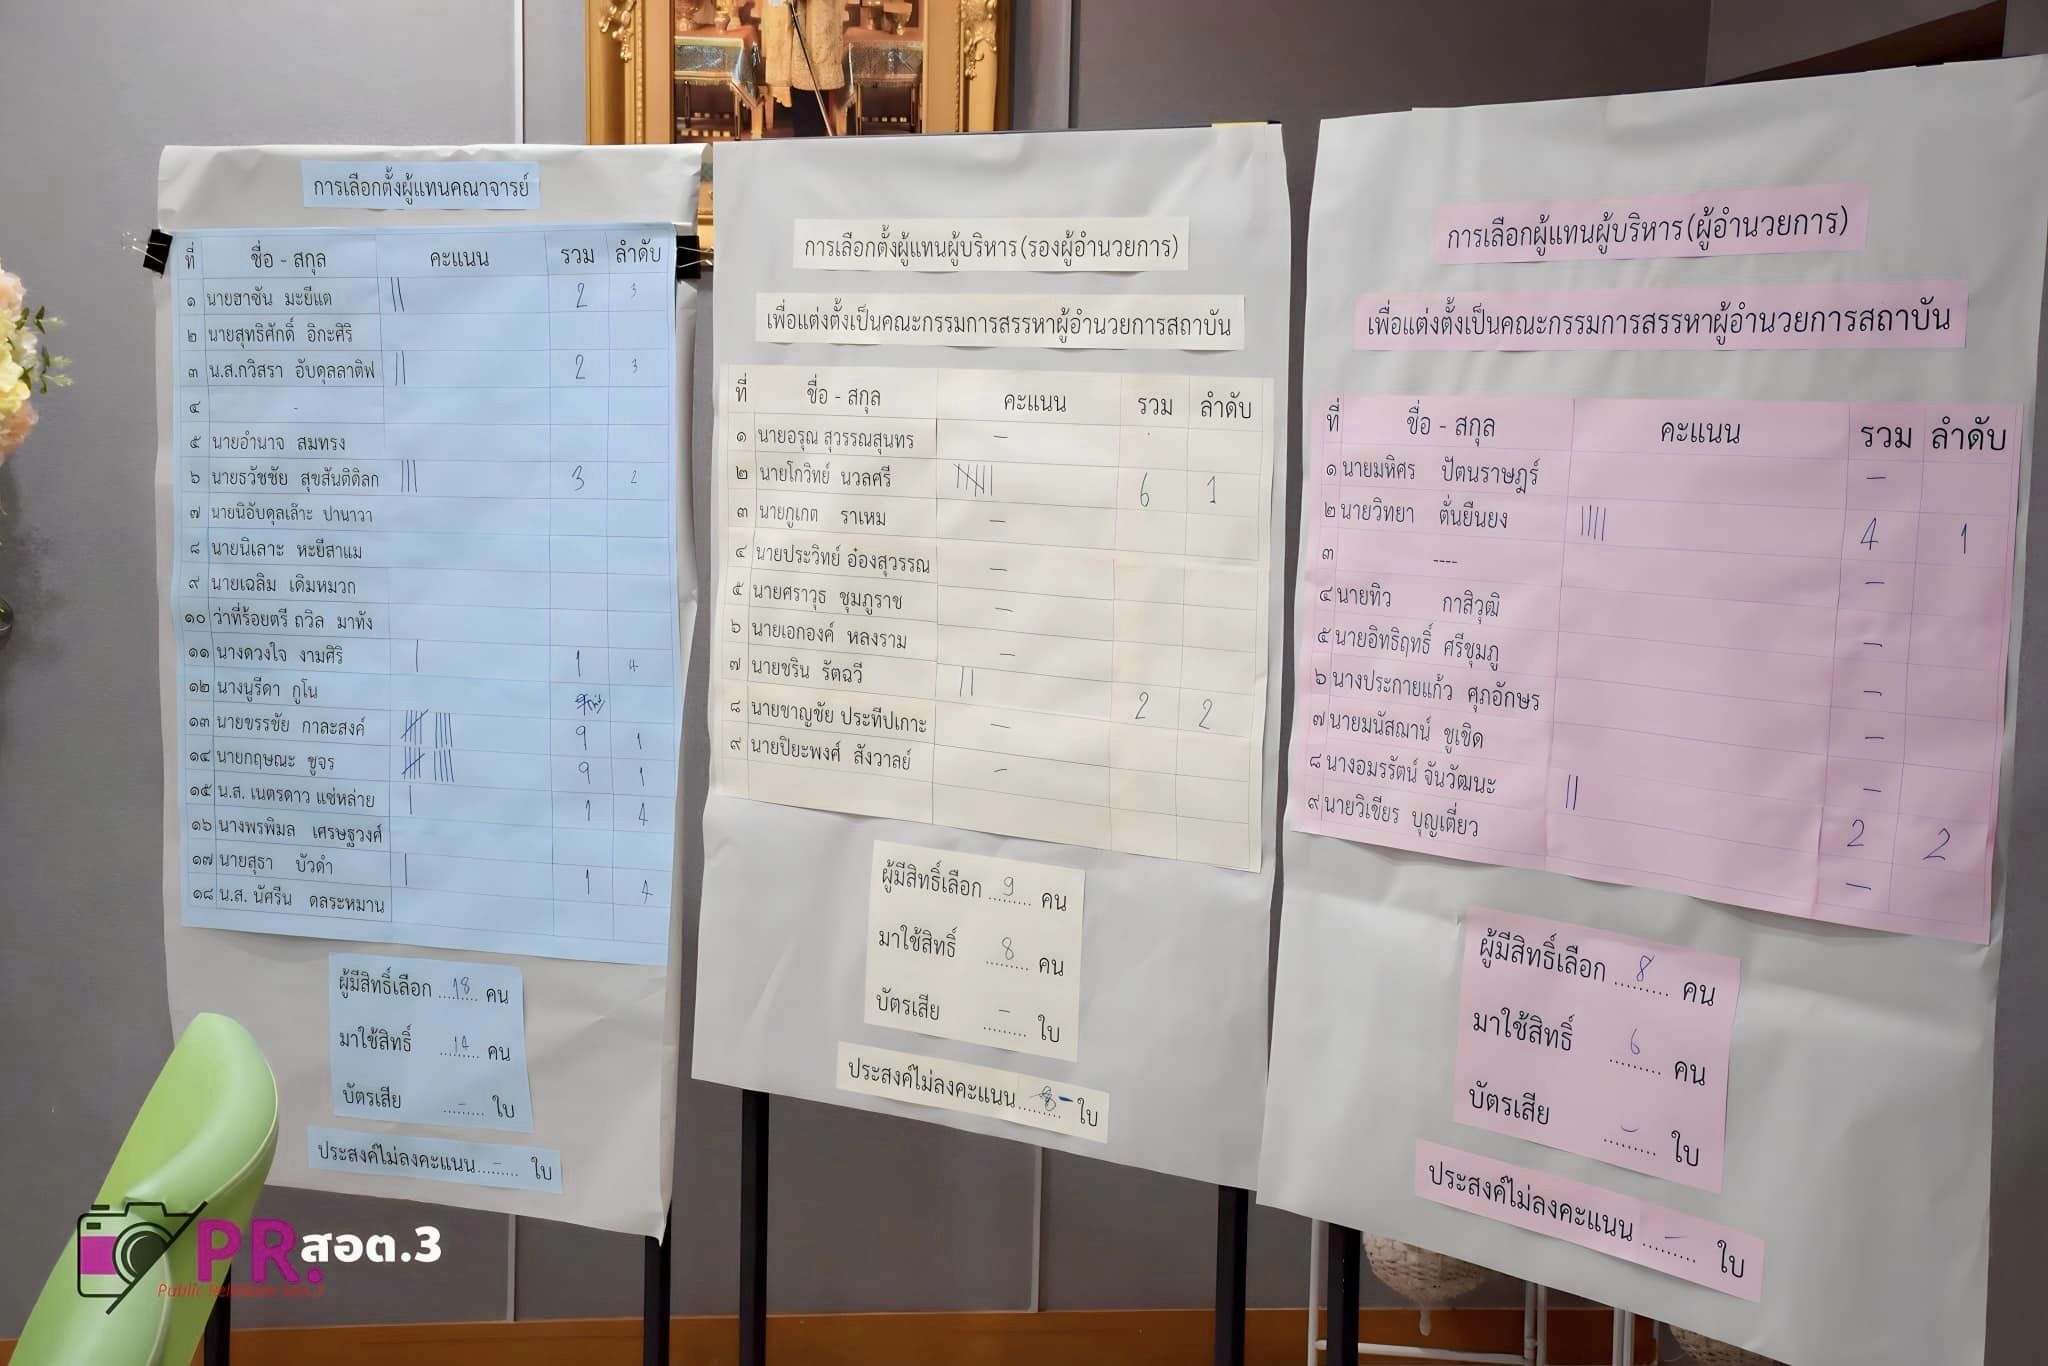 การเลือกตั้งผู้แทนคณาจารย์
ที่ ชื่อ - สกุล คะแนน รวม ลำดับ
๑ นายฮาซัน มะยีแต || 2 3
๒ นายสุทธิศักดิ์ อิกะศิริ
๓ น.ส.กวิสรา อับดุลลาติฟ || 2 3
๔ -
๕ นายอำนาจ สมทรง
๖ นายธวัชชัย สุขสันติดิลก ||| 3 2
๗ นายนิอับดุลเล๊าะ ปานาวา
๘ นายนิเลาะ หะยีสาแม
๙ นายเฉลิม เดิมหมวก
๑๐ ว่าที่ร้อยตรี ถวิล มาทัง
๑๑ นางดวงใจ งามศิริ | 1 4
๑๒ นางนูรีดา กูโน
๑๓ นายขรรชัย กาละสงค์ 9 1
๑๔ นายกฤษณะ ชูจร 9 1
๑๕ น.ส. เนตรดาว แซ่หล่าย | 1 4
๑๖ นางพรพิมล เศรษฐวงศ์
๑๗ นายสุธา บัวดำ | 1 4
๑๘ น.ส. นัศรีน ดลระหมาน
ผู้มีสิทธิ์เลือก ...18... คน
มาใช้สิทธิ์ ...14... คน
บัตรเสีย ...-... ใบ
ประสงค์ไม่ลงคะแนน...-... ใบ
การเลือกตั้งผู้แทนผู้บริหาร(รองผู้อำนวยการ)
เพื่อแต่งตั้งเป็นคณะกรรมการสรรหาผู้อำนวยการสถาบัน
ที่ ชื่อ - สกุล คะแนน รวม ลำดับ
๑ นายอรุณ สุวรรณสุนทร -
๒ นายโกวิทย์ นวลศรี 6 1
๓ นายภูเกต ราเหม -
๔ นายประวิทย์ อ๋องสุวรรณ -
๕ นายศราวุธ ชุมภูราช -
๖ นายเอกองค์ หลงราม -
๗ นายชริน รัตฉวี || 2 2
๘ นายชาญชัย ประทีปเกาะ -
๙ นายปิยะพงศ์ สังวาลย์ -
ผู้มีสิทธิ์เลือก ...9... คน
มาใช้สิทธิ์ ...8... คน
บัตรเสีย ...-... ใบ
ประสงค์ไม่ลงคะแนน...-... ใบ
การเลือกผู้แทนผู้บริหาร(ผู้อำนวยการ)
เพื่อแต่งตั้งเป็นคณะกรรมการสรรหาผู้อำนวยการสถาบัน
ที่ ชื่อ - สกุล คะแนน รวม ลำดับ
๑ นายมหิศร ปัตนราษฎร์ -
๒ นายวิทยา ตั่นยืนยง |||| 4 1
๓ ---- -
๔ นายทิว กาสิวุฒิ -
๕ นายอิทธิฤทธิ์ ศรีชุมภู -
๖ นางประกายแก้ว ศุภอักษร -
๗ นายมนัสฌาน์ ชูเชิด -
๘ นางอมรรัตน์ จันวัฒนะ || 2 2
๙ นายวิเชียร บุญเตี่ยว -
ผู้มีสิทธิ์เลือก ...8... คน
มาใช้สิทธิ์ ...6... คน
บัตรเสีย ...-... ใบ
ประสงค์ไม่ลงคะแนน ...-... ใบ
PR.สอต.3